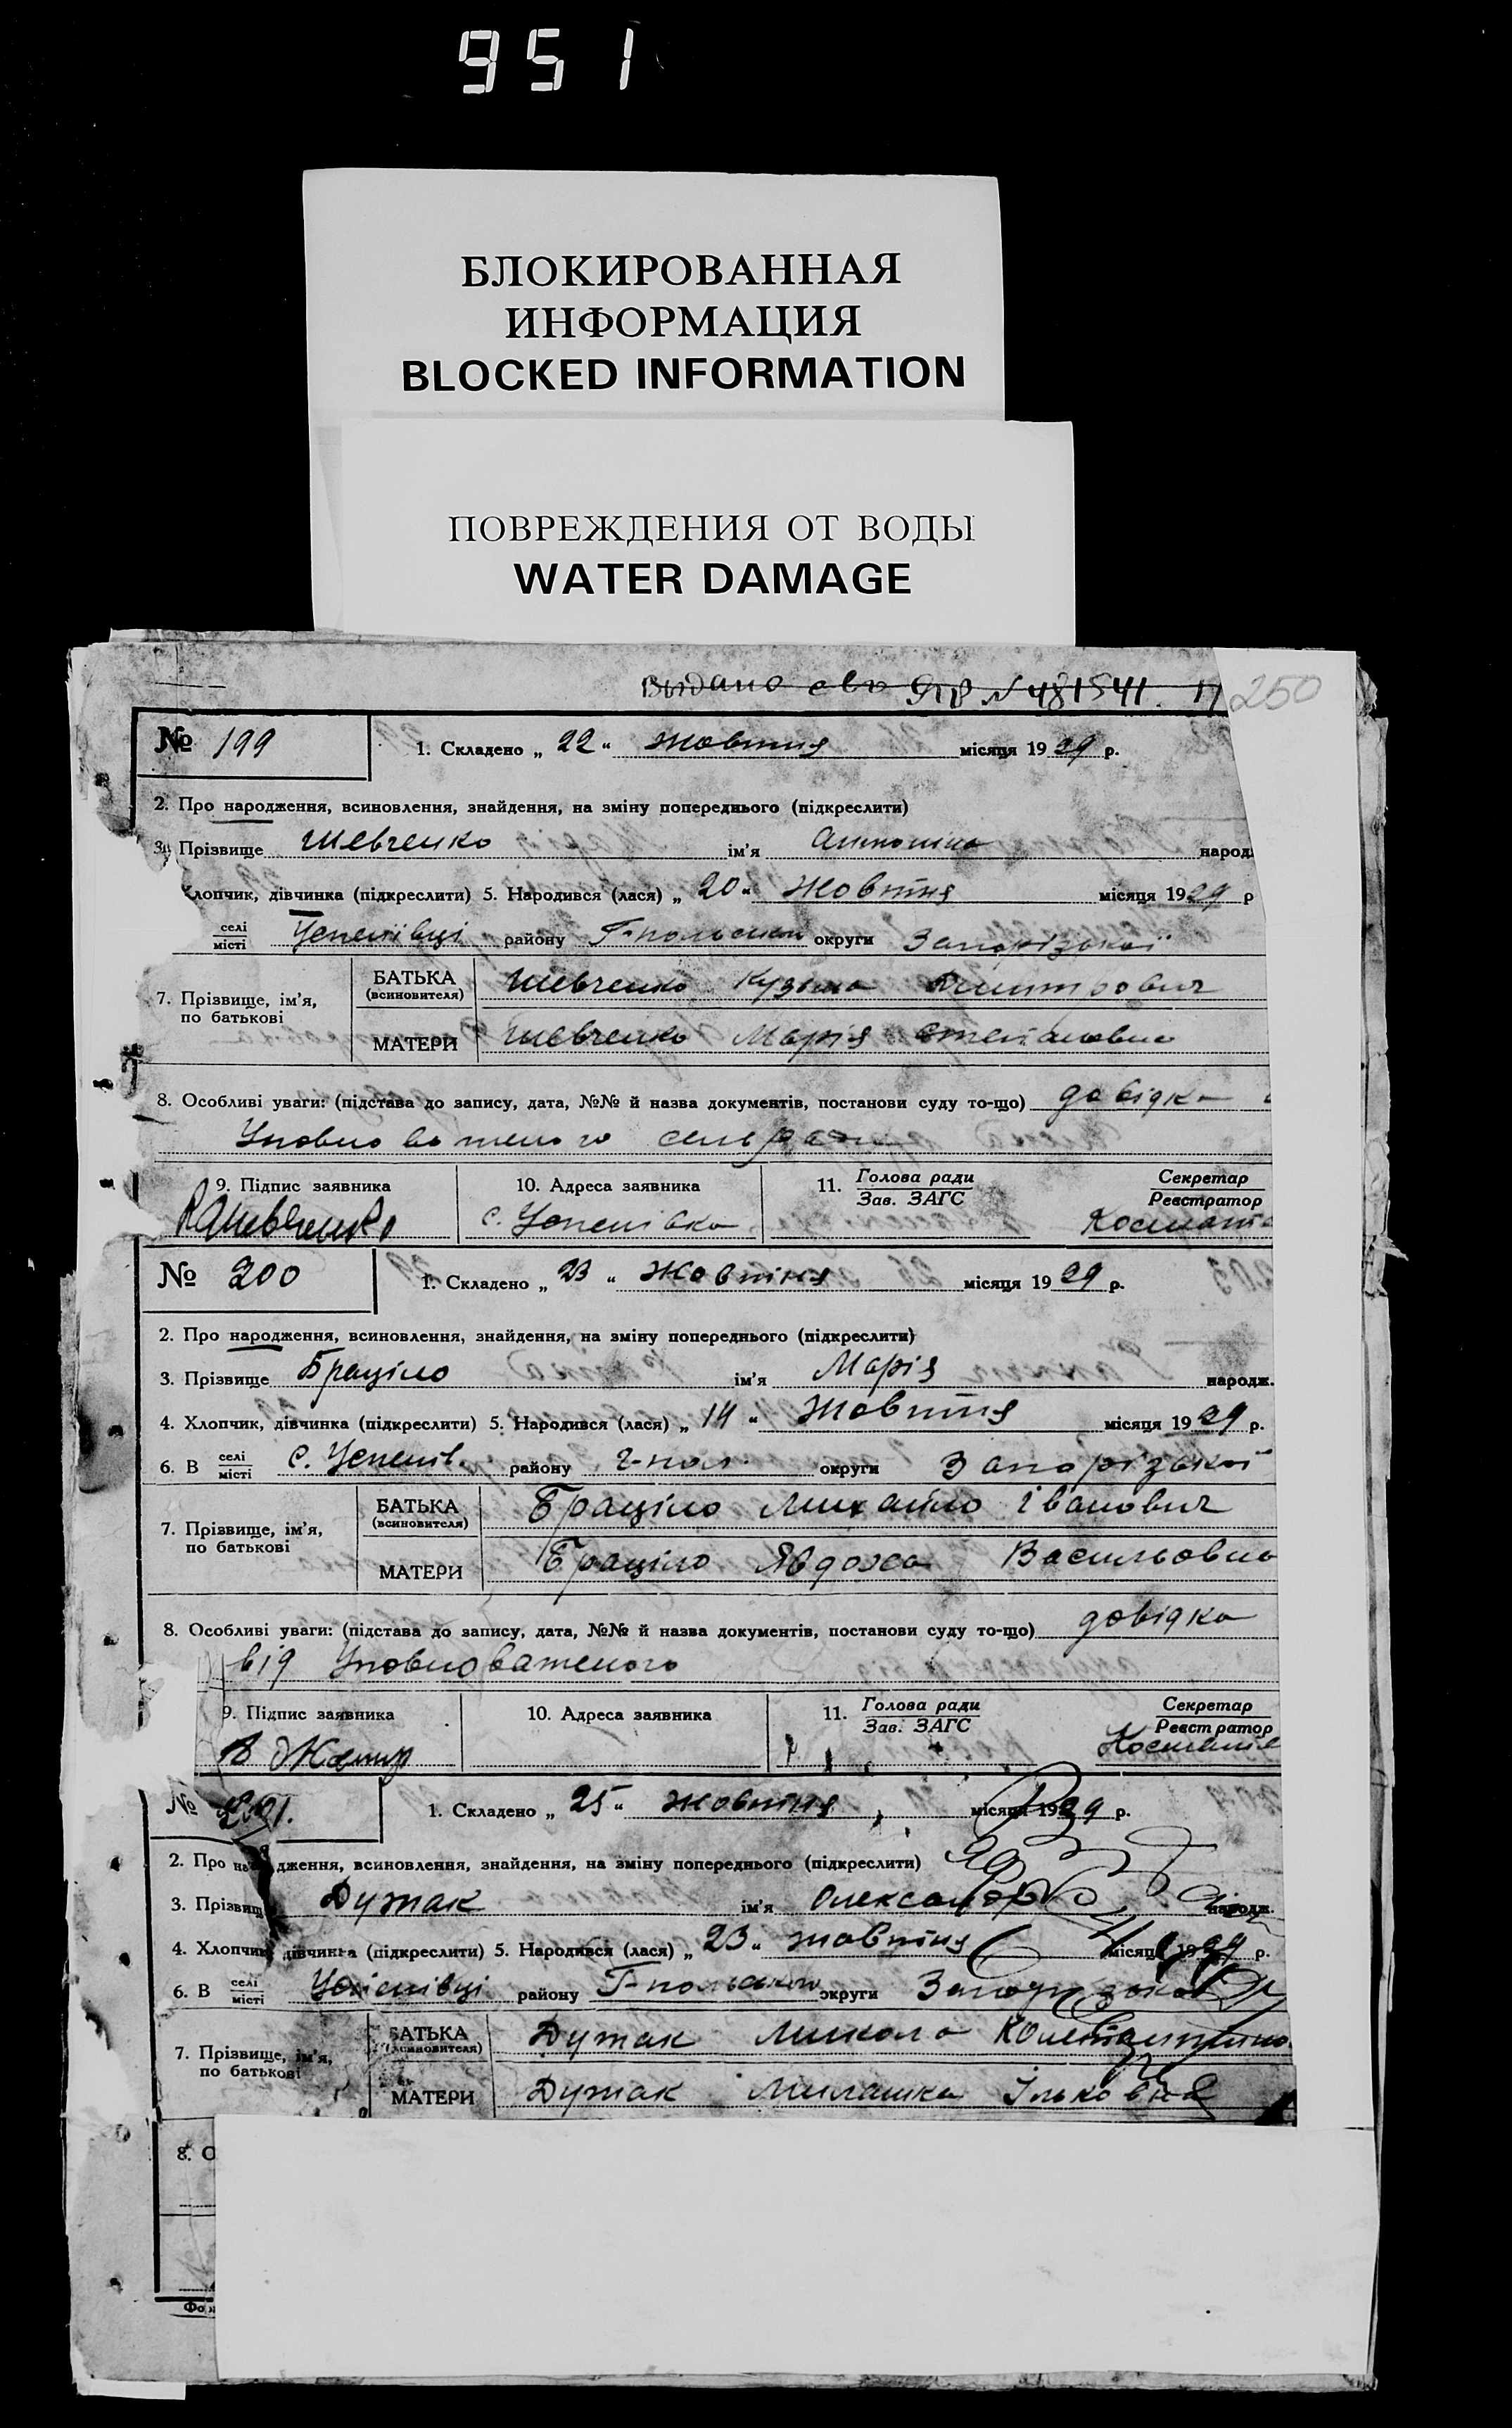 951
БЛОКИРОВАННАЯ
ИНФОРМАЦИЯ
BLOCKED INFORMATION
ПОВРЕЖДЕНИЯ ОТ ВОДЫ
WATER DAMAGE
Выдано св-во ЯР N 481541.
250
№ 199
1. Складено „ 22 “ Жовтня місяця 1929 р.
2. Про народження, всиновлення, знайдення, на зміну попереднього (підкреслити)
3. Прізвище Шевченко ім’я Антоніна народ
Хлопчик, дівчинка (підкреслити) 5. Народився (лася) „ 20 “ Жовтня місяця 1929 р
селі
місті Успенівці району Г-польськ округи Запорізької
7. Прізвище, ім’я, по батькові
БАТЬКА (всиновителя) Шевченко Кузьма Дмитрович
МАТЕРИ Шевченко Марія Степановна
8. Особливі уваги: (підстава до запису, дата, №№ й назва документів, постанови суду то-що) довідка
Уповноваженого сельради
9. Підпис заявника 10. Адреса заявника 11. Голова ради Секретар
Зав. ЗАГС Реєстратор
Шевченко с. Успенівка
№ 200
1. Складено „ 23 “ Жовтня місяця 1929 р.
2. Про народження, всиновлення, знайдення, на зміну попереднього (підкреслити)
3. Прізвище Браціло ім’я Марія народж.
4. Хлопчик, дівчинка (підкреслити) 5. Народився (лася) „ 14 “ Жовтня місяця 1929 р.
6. В селі
місті с. Успенів. району Г-пол. округи Запорізької
7. Прізвище, ім’я, по батькові
БАТЬКА (всиновителя) Браціло Михайло Іванович
МАТЕРИ Браціло Явдоха Васильовна
8. Особливі уваги: (підстава до запису, дата, №№ й назва документів, постанови суду то-що) довідка
від Уповноваженого
9. Підпис заявника 10. Адреса заявника 11. Голова ради Секретар
Зав. ЗАГС Реєстратор
№ 201.
1. Складено „ 25 “ жовтня місяця 1929 р.
2. Про дження, всиновлення, знайдення, на зміну попереднього (підкреслити)
3. Прізвищ Дужак ім’я Олександр народж.
4. Хлопчик дівчинка (підкреслити) 5. Народився (лася) „ 23 “ жовтня місяця 1929 р.
6. В селі
місті Успенівці району Г-польського округи
7. Прізвище, ім’я, по батькові
БАТЬКА (всиновителя) Дужак Микола
МАТЕРИ Дужак Милашка Ільковна
8. О
Фо